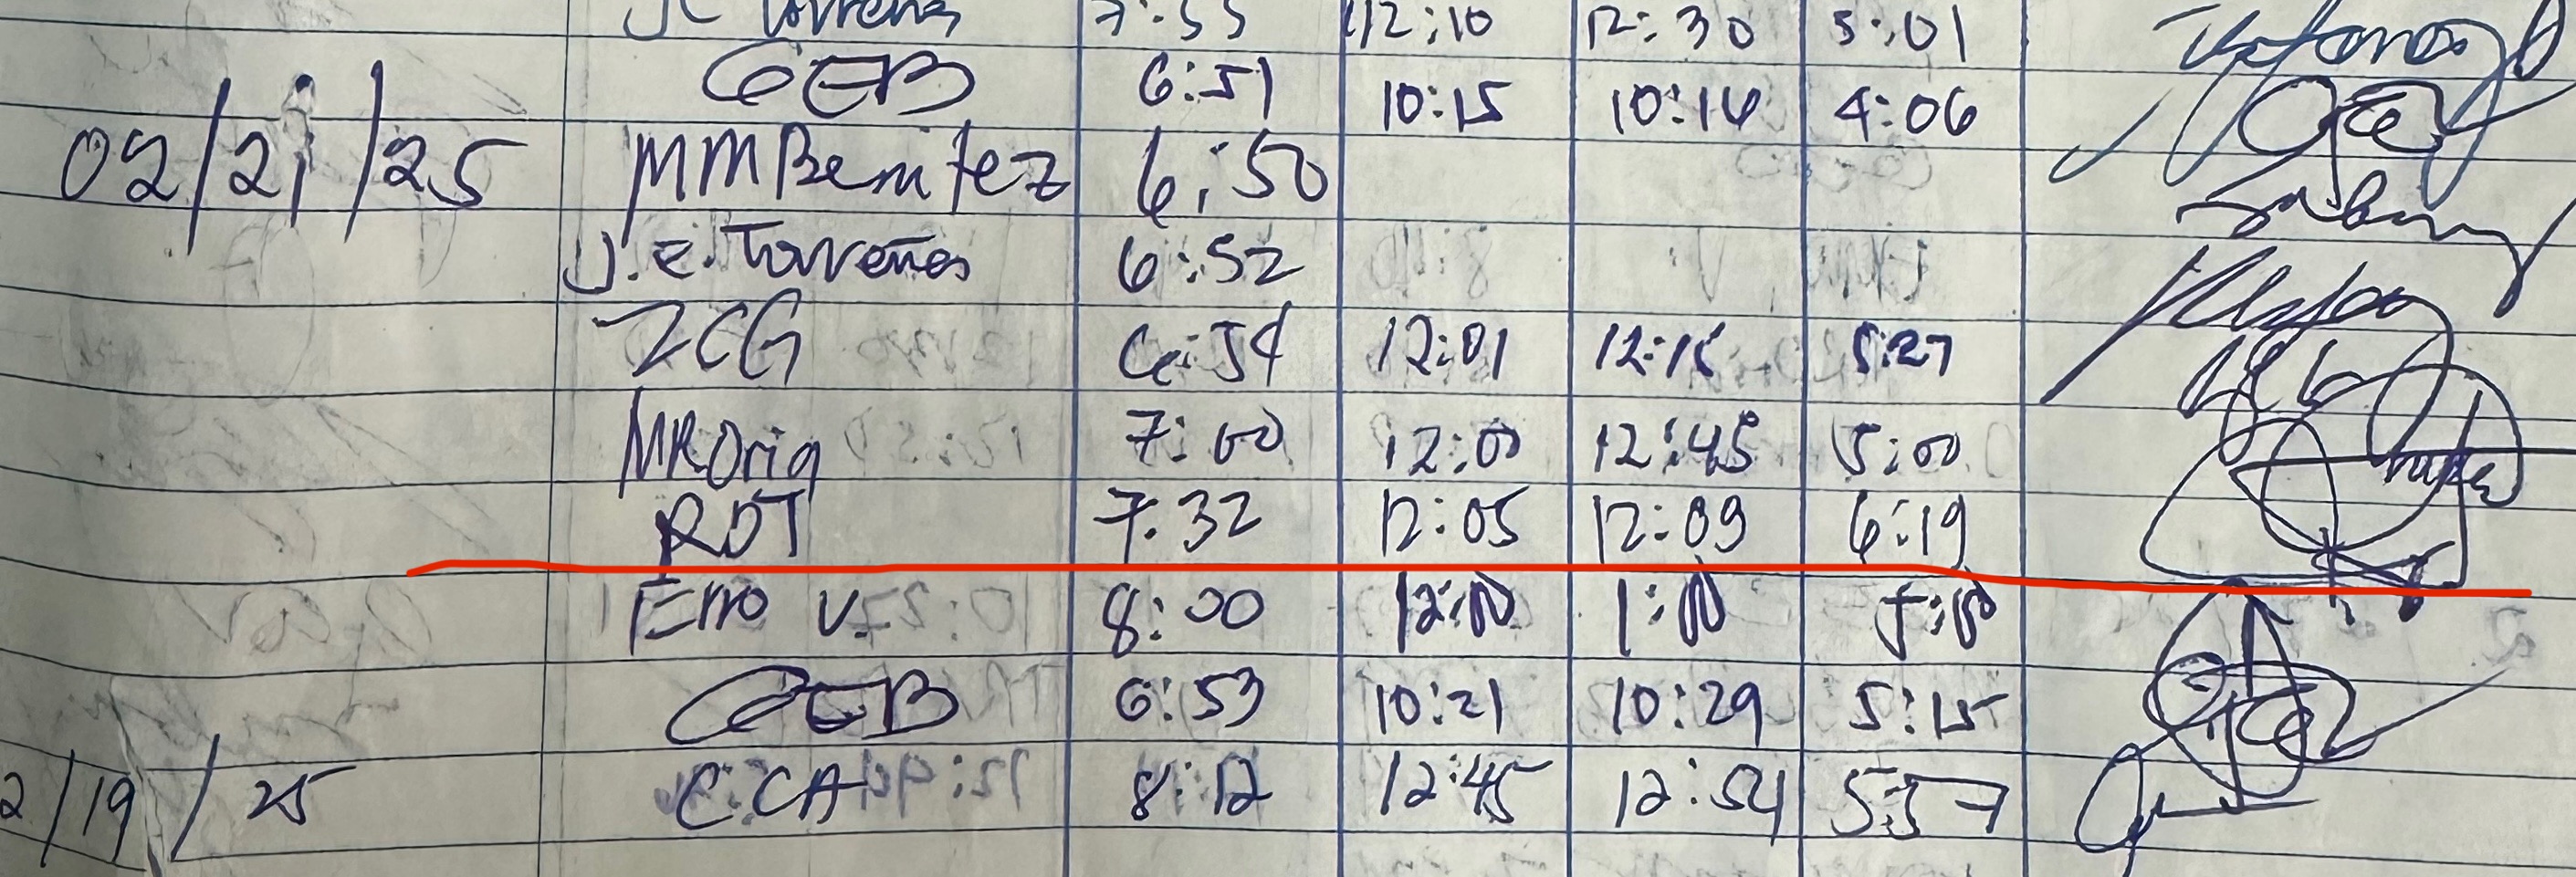 7:55 12:10 12:30 5:01
GEB 6:51 10:15 10:16 4:06
02/21/25 MMBenitez 6:50
J.E. Torreños 6:52
ZCG 6:54 12:01 12:15 5:27
MROrig 7:00 12:00 12:45 5:00
RDT 7:32 12:05 12:09 6:19
8:00 12:00 1:00 5:00
GEB 6:53 10:21 10:29 5:15
2/19/25 C.CA 8:12 12:45 12:54 5:57